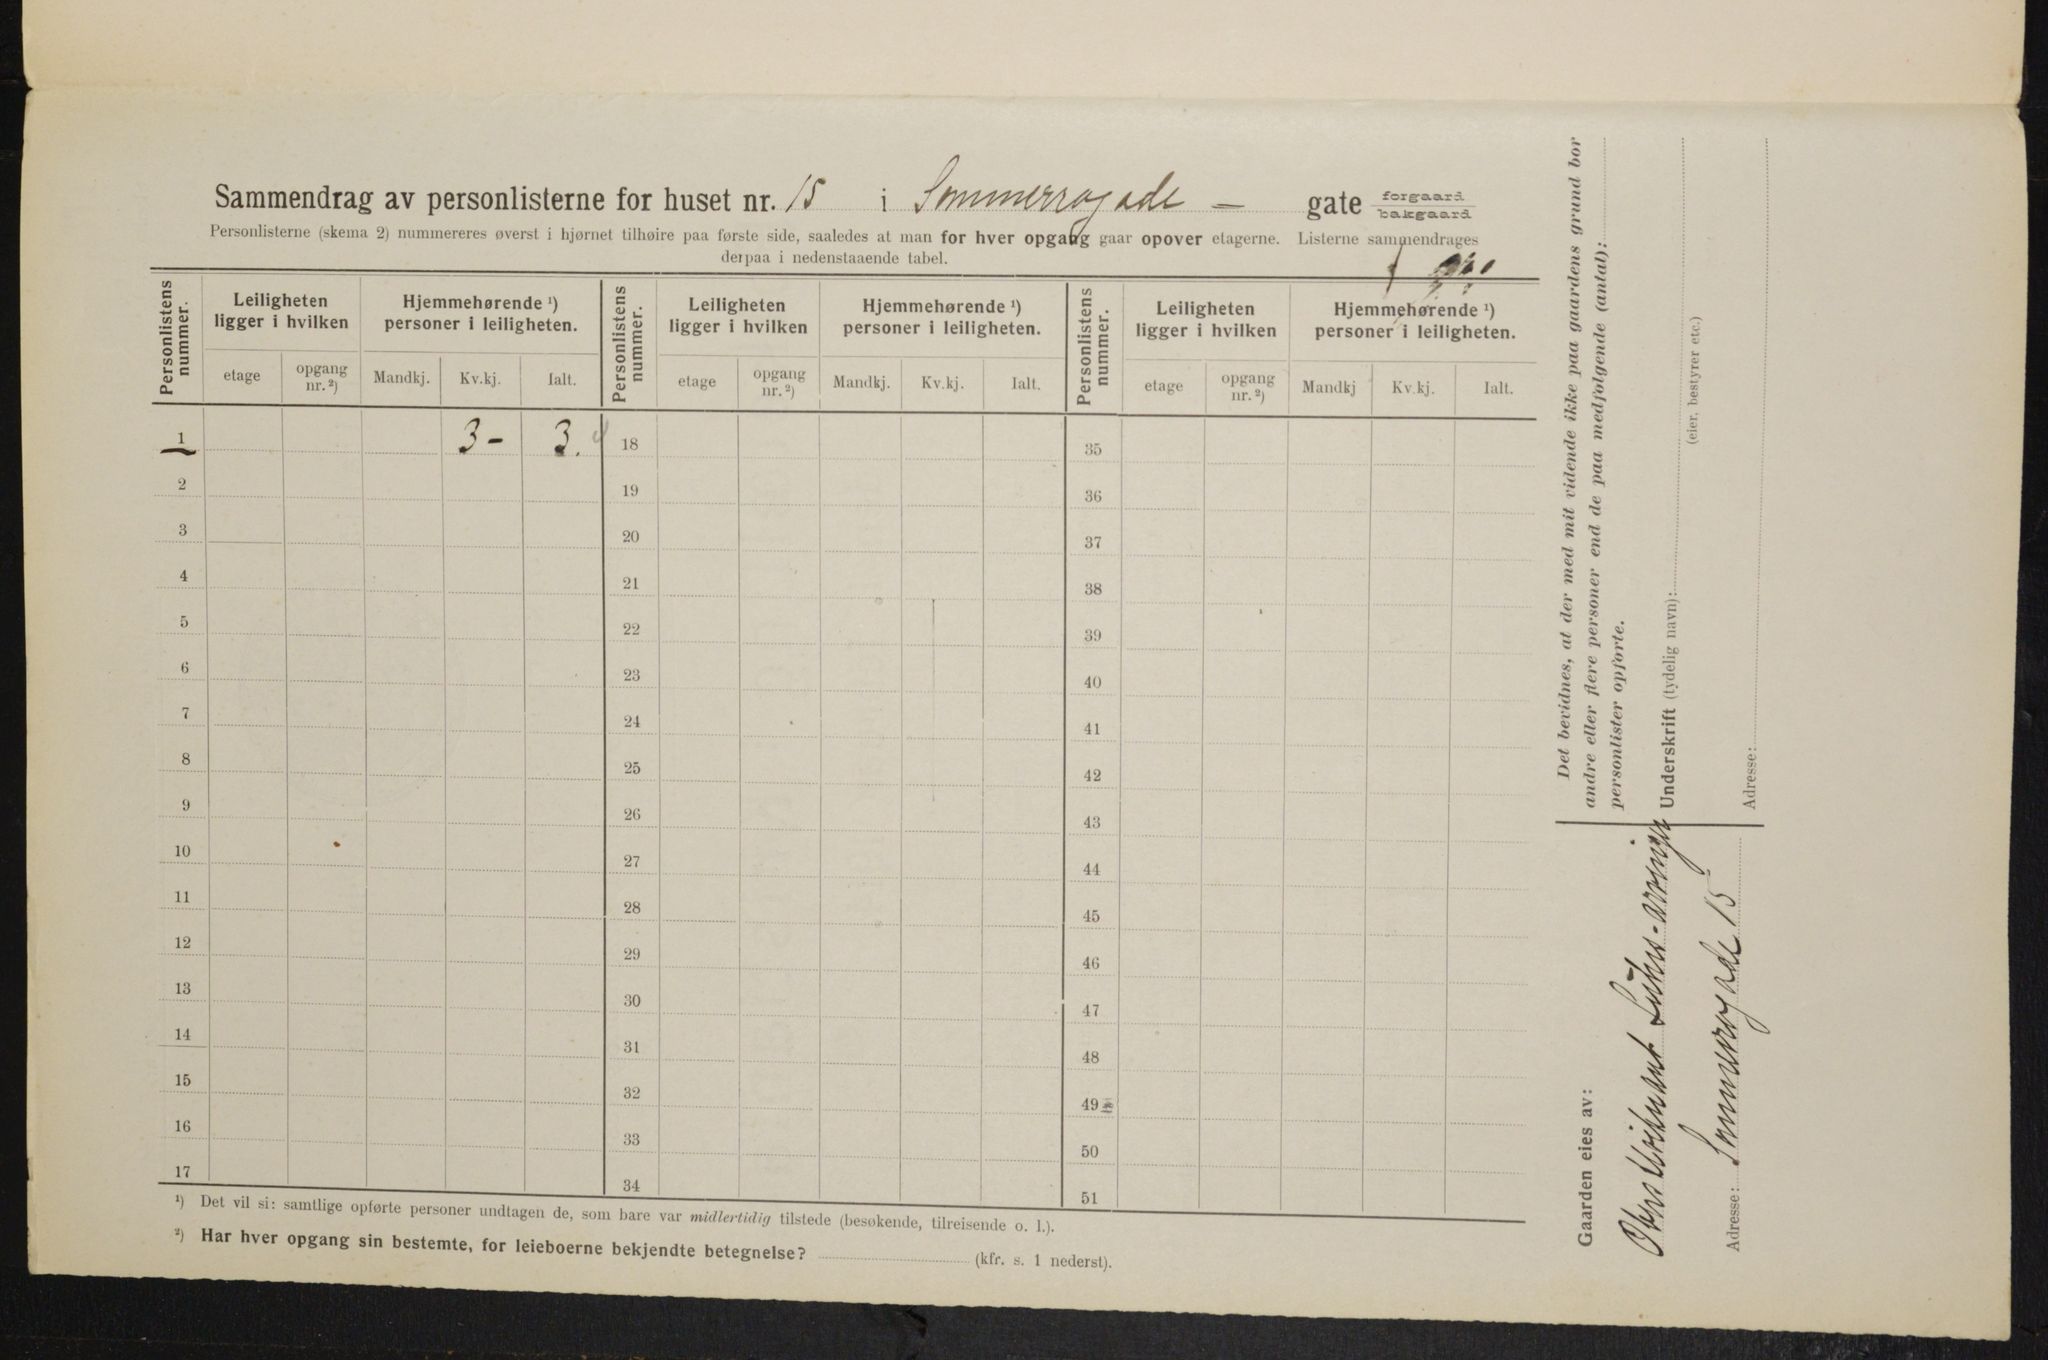 Sammendrag av personlisterne for huset nr. 15 i Sommerrogade – gate forgaard bakgaard
Personlisterne (skema 2) nummereres øverst i hjørnet tilhøire paa første side, saaledes at man for hver opgang gaar opover etagerne. Listerne sammendrages
derpaa i nedenstaaende tabel.
Personlistens nummer. Leiligheten ligger i hvilken Hjemmehørende ¹) personer i leiligheten. Personlistens nummer. Leiligheten ligger i hvilken Hjemmehørende ¹) personer i leiligheten. Personlistens nummer. Leiligheten ligger i hvilken Hjemmehørende ¹) personer i leiligheten.
etage opgang nr. ²) Mandkj. Kv.kj. Ialt. etage opgang nr. ²) Mandkj. Kv.kj. Ialt. etage opgang nr. ²) Mandkj Kv.kj. Ialt.
1 3 – 3. 18 35
2 19 36
3 20 37
4 21 38
5 22 39
6 23 40
7 24 41
8 25 42
9 26 43
10 27 44
11 28 45
12 29 46
13 30 47
14 31 48
15 32 49
16 33 50
17 34 51
¹) Det vil si: samtlige opførte personer undtagen de, som bare var midlertidig tilstede (besøkende, tilreisende o. l.).
²) Har hver opgang sin bestemte, for leieboerne bekjendte betegnelse? (kfr. s. 1 nederst).
Det bevidnes, at der med mit vidende ikke paa gaardens grund bor
andre eller flere personer end de paa medfølgende (antal):
personlister opførte.
Underskrift (tydelig navn):
(eier, bestyrer etc.)
Adresse:
Gaarden eies av:
Adresse: Sommerrogade 15